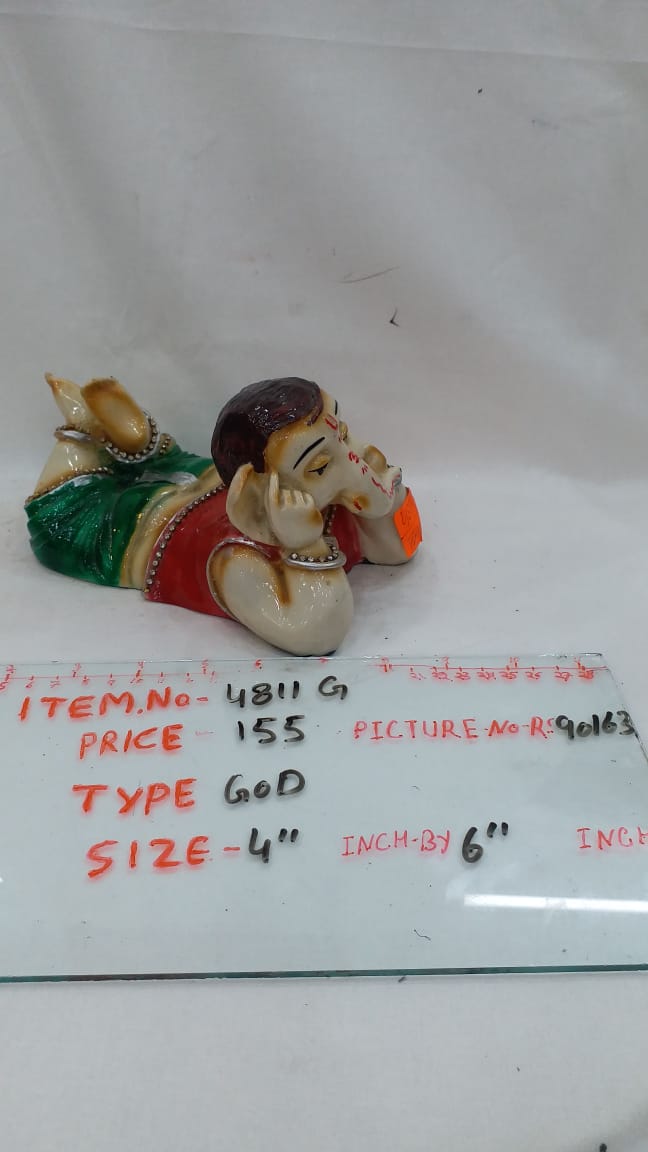 ITEM.No- 4811 G
PRICE - 155 PICTURE-No-RS 90163
TYPE GOD
SIZE-4" INCH-BY 6" INCH